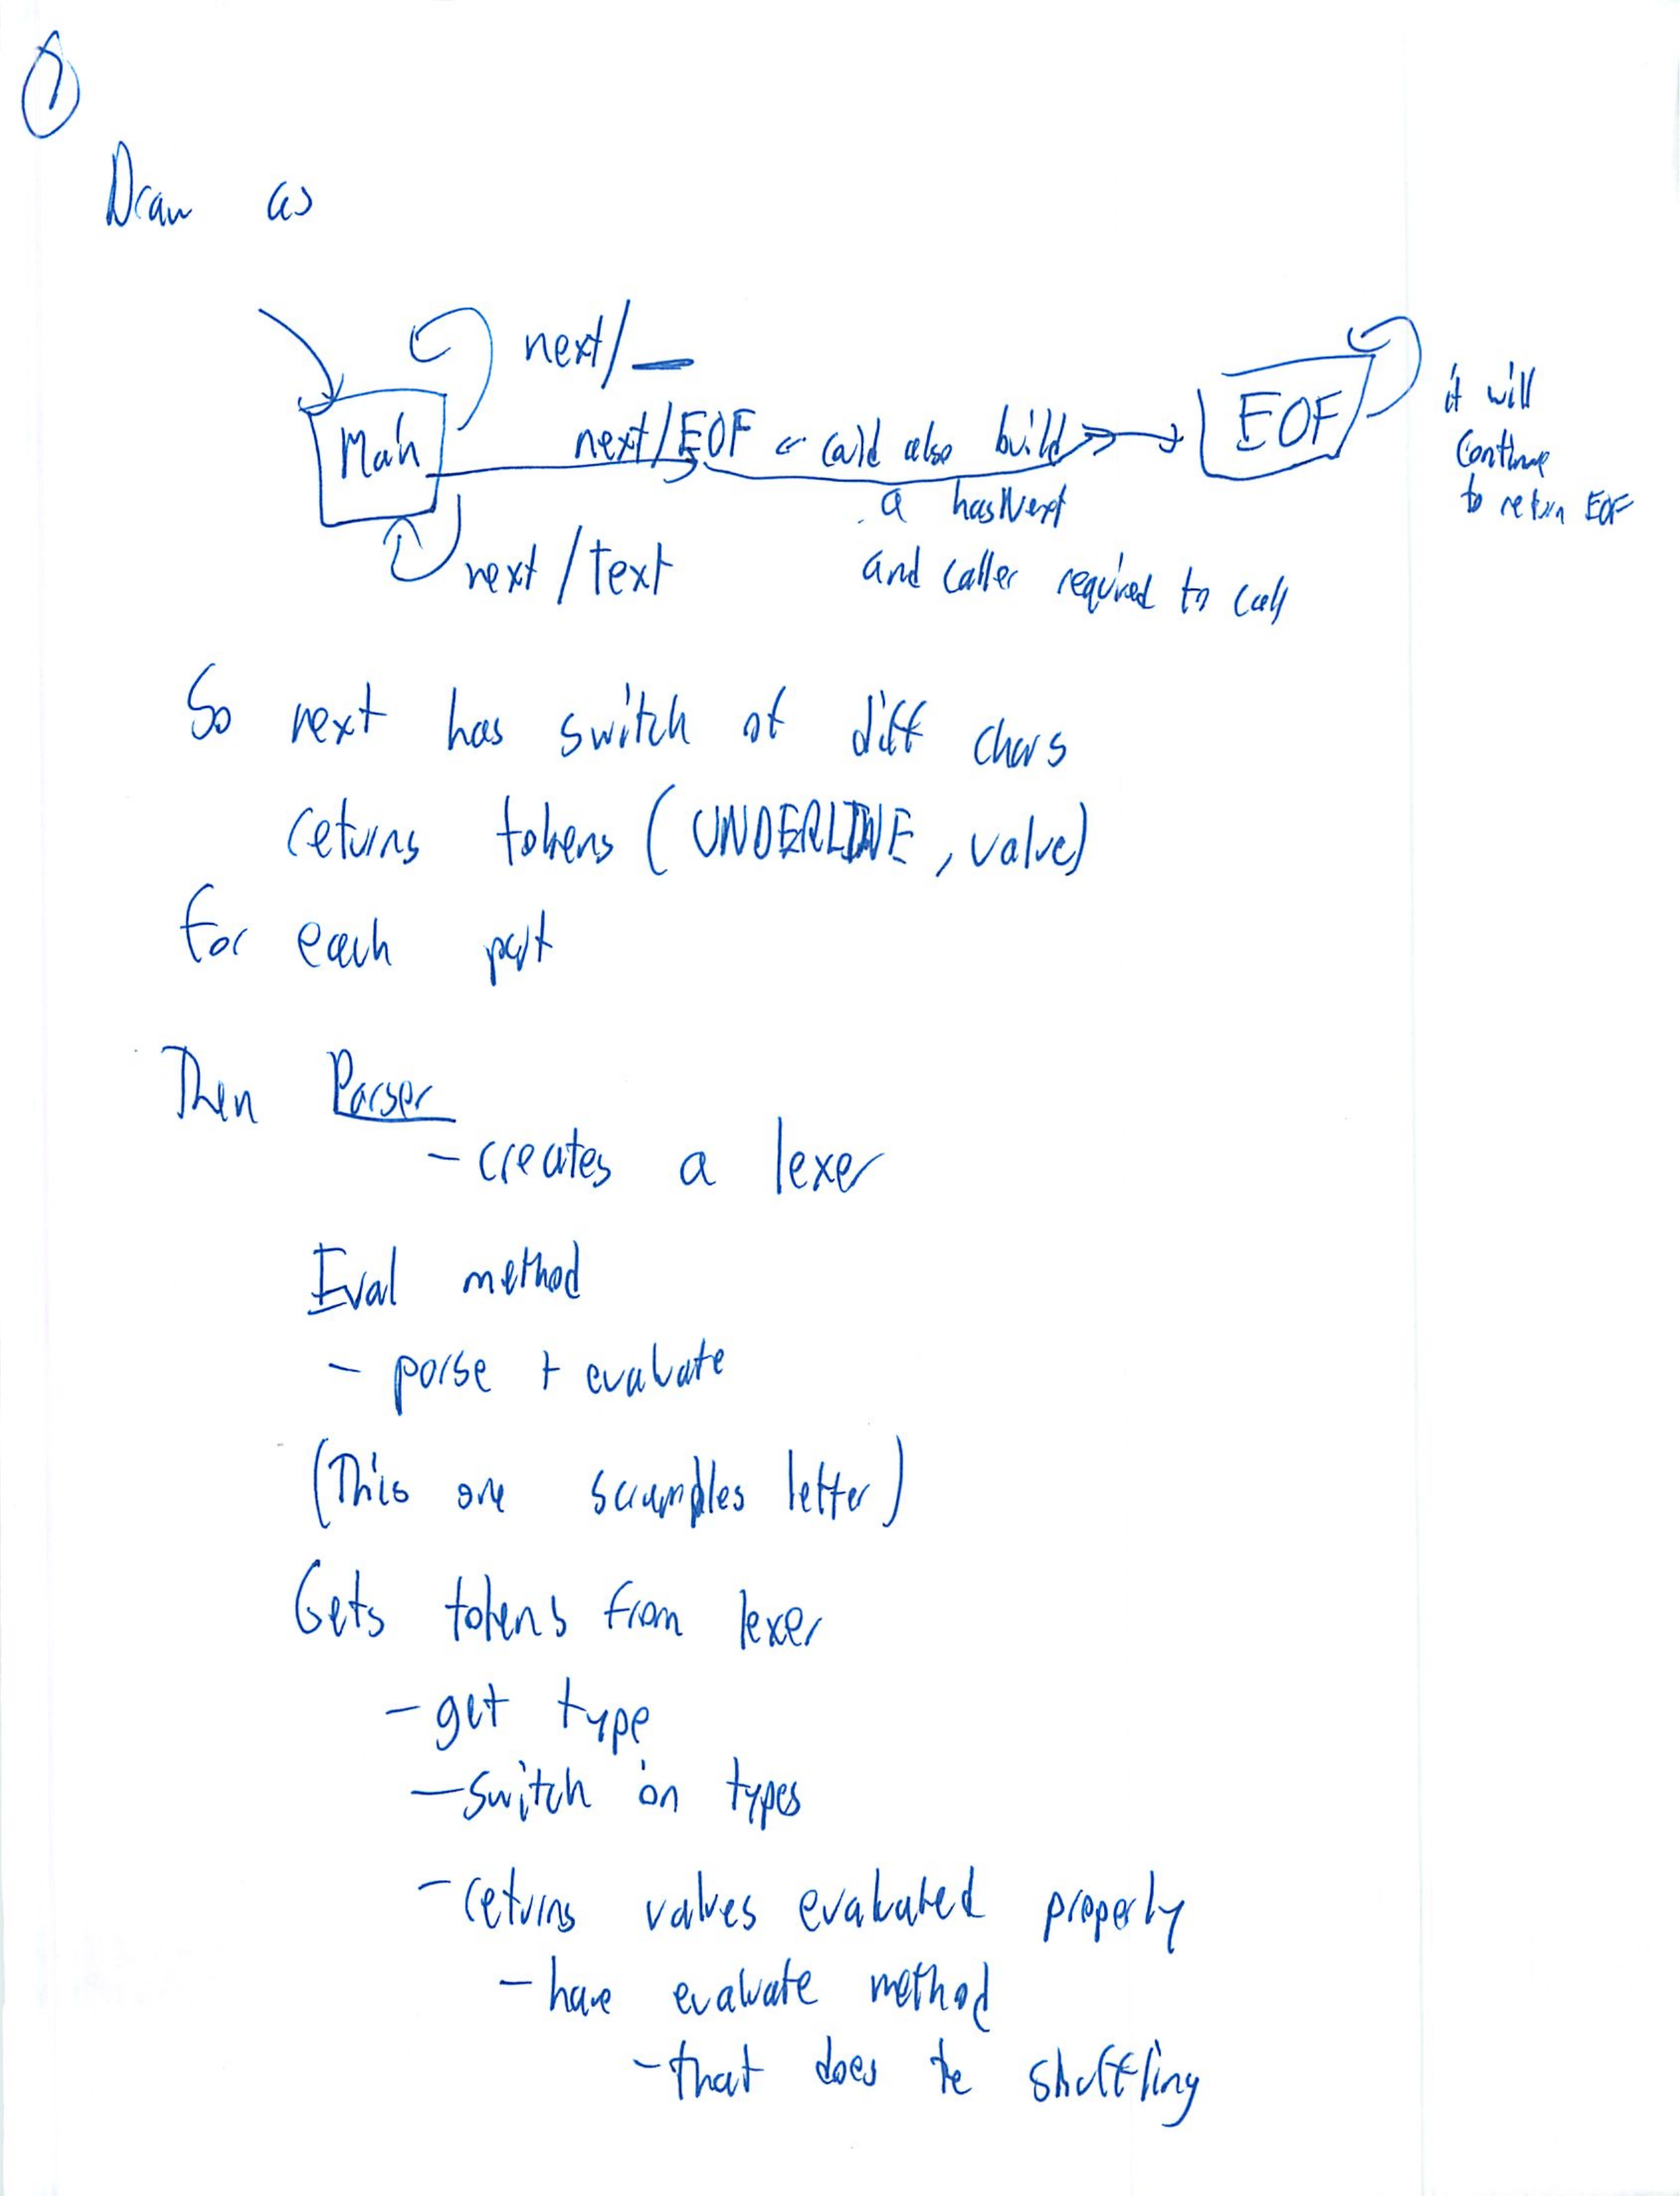 7
Draw as
next/_
it will
Main
next/EOF
← could also build
EOF
continue
a hasNext
to return EOF
next/text
and caller required to call
So next has switch of diff chars
returns tokens (UNDERLINE, value)
for each part
Then Parser
- creates a lexer
Eval method
- parse + evaluate
(This one scrambles letter)
Gets tokens from lexer
- get type
- switch on types
- returns values evaluated properly
- have evaluate method
- that does the shuffling